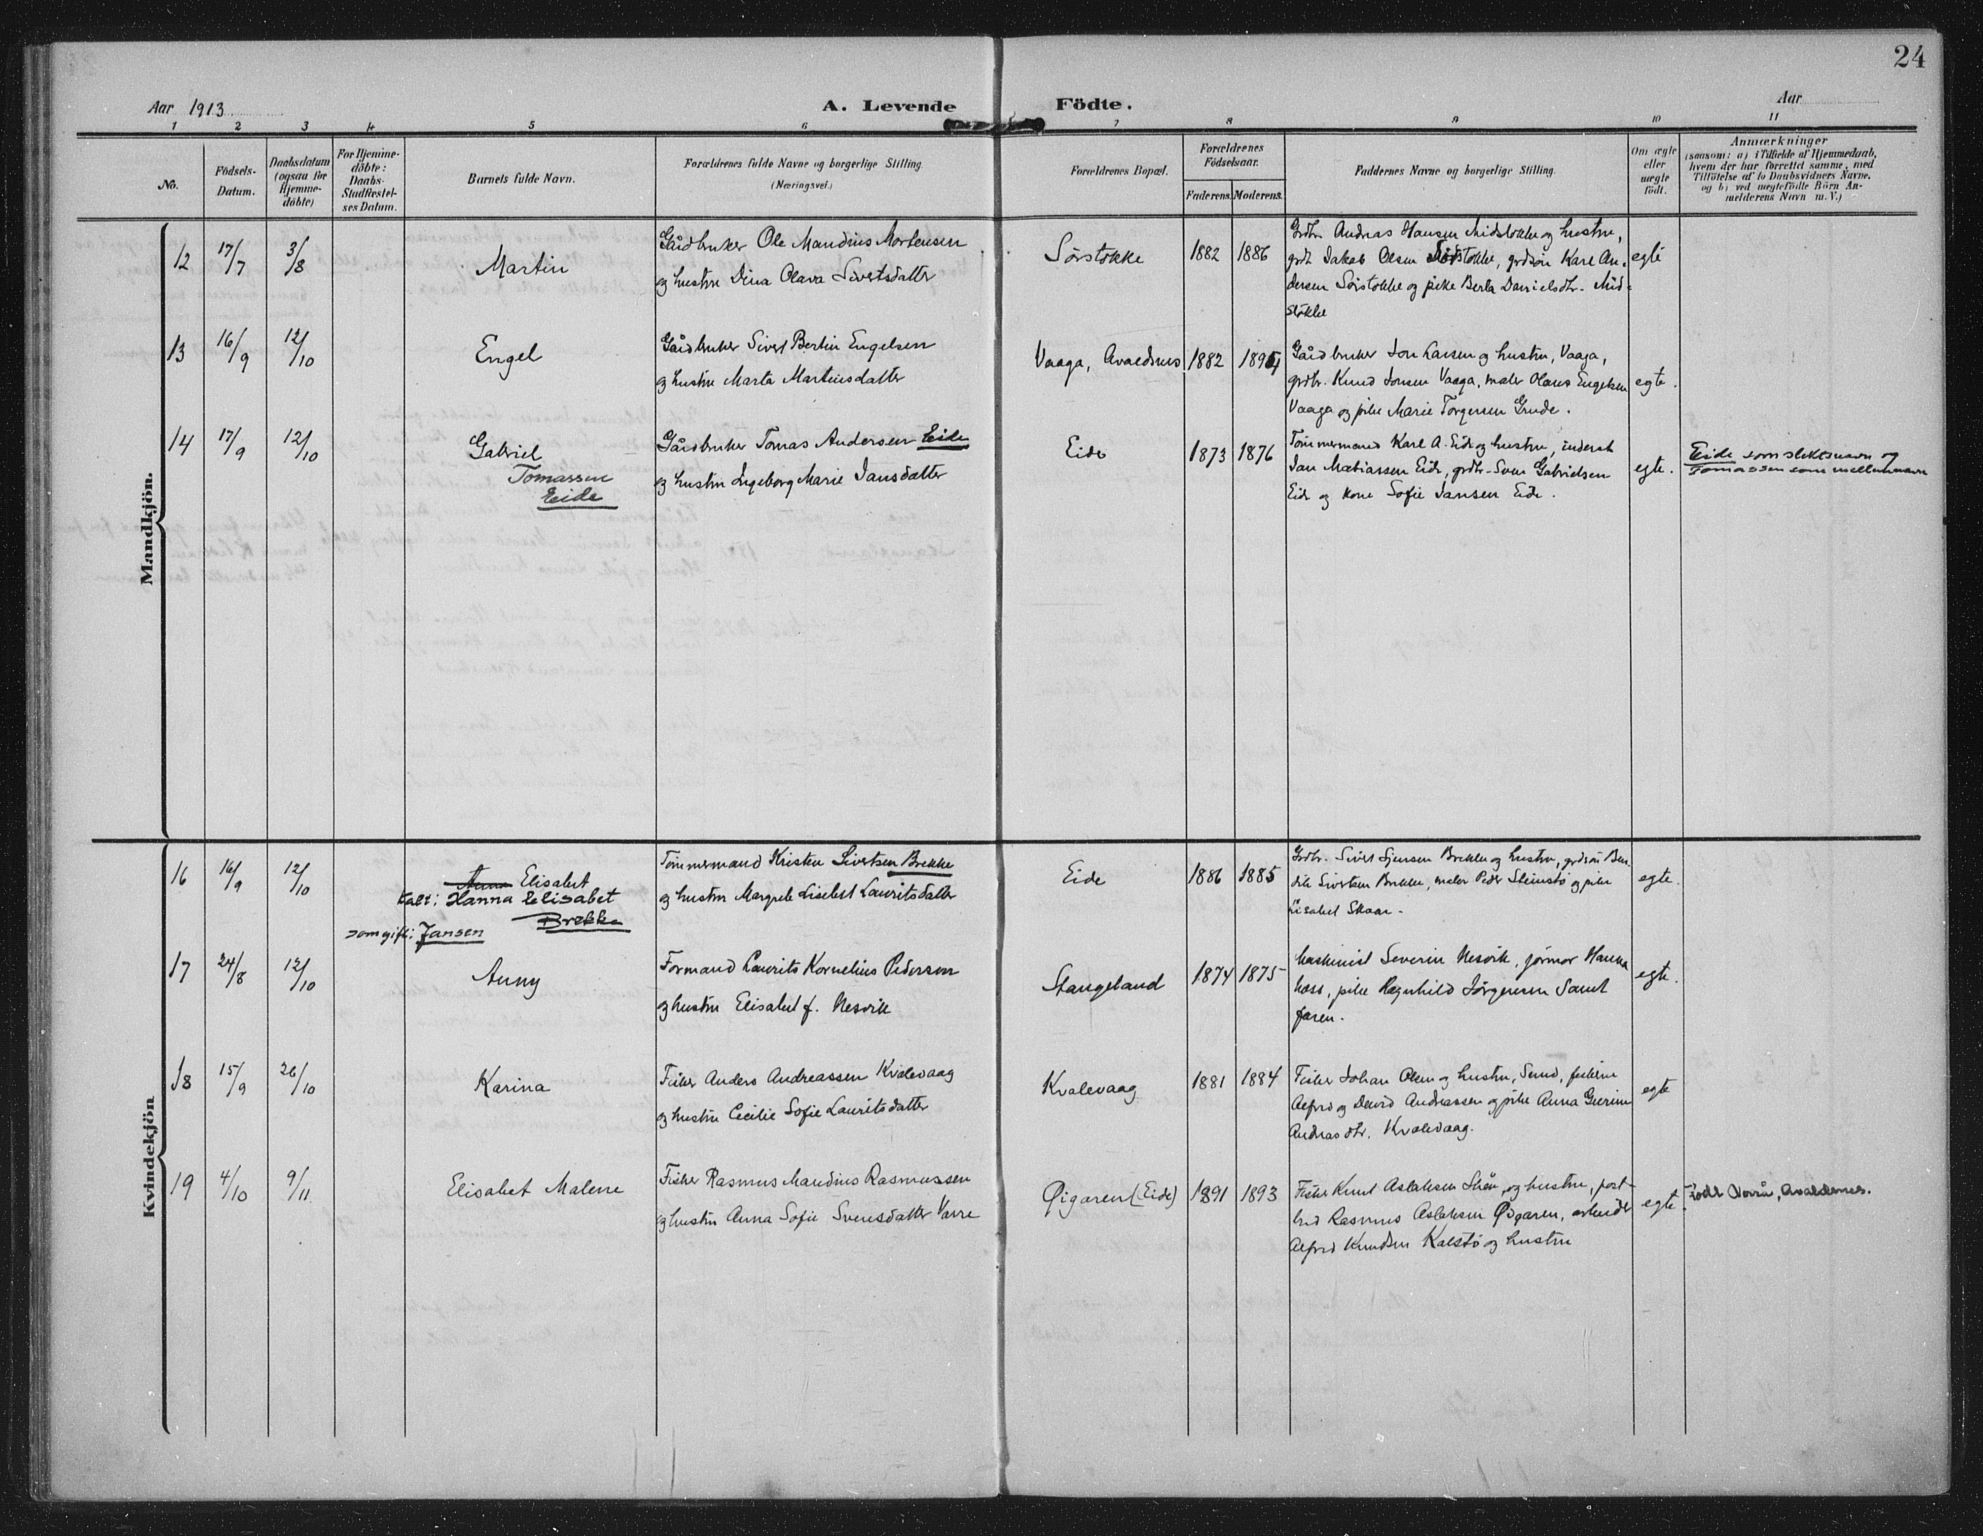 24
Aar 1913
A. Levende Födte.
Aar
1 2 3 4 5 6 7 8 9 10 11
No.
Födsels-
Datum.
Daabsdatum
(ogsaa for
Hjemme-
döbte)
For Hjemme-
döbte:
Daabs-
Stadfæstel-
ses Datum.
Barnets fulde Navn.
Forældrenes fulde Navne og borgerlige Stilling.
(Næringsvei.)
Forældrenes Bopæl.
Forældrenes
Födselsaar.
Faderens. Moderens.
Faddernes Navne og borgerlige Stilling.
Om ægte
eller
uægte
födt.
Anmærkninger
(saasom: a) i Tilfælde af Hjemmedaab,
hvem der har forrettet samme, med
Tilföielse af to Daabsvidners Navne,
og b) ved uægtefödte Börn An-
melderens Navn m. V.)
Mandkjön.
12 17/7 3/8 Martin
Gårdbruker Ole Mandius Mortensen
og hustru Dina Olava Sivertsdatter
Sørstokke 1882 1886
Grdbr. Andreas Hansen Midstokke og hustru,
grdt. Jakob Olsen Sørstokke, grdsøn Karl An-
dersen Sørstokke og pike Berta Danielsdtr. Mid-
stokke
egte
13 16/9 12/10 Engel
Gårdbruker Sivert Bertin Engelsen
og hustru Marta Martinsdatter
Vaaga, Avaldsnes 1882 1894
Gårdbruker Jon Larsen og hustru, Vaaga,
grdbr. Knud Jonsen Vaaga, maler Olaus Engelsen
Vaaga og pike Marie Torgersen Grude.
egte.
14 17/9 12/10 Gabriel
Tomassen
Eide
Gårdbruker Tomas Andersen Eide
og hustru Ingeborg Marie Jansdatter
Eide 1873 1876
Tømmermand Karl A. Eide og hustru, inderst
Jan Matiassen Eide, grdbr. Sven Gabrielsen
Eide og kone Sofie Jansen Eide.
egte.
Eide som slektsnavn og
Tomassen som mellemnavn
Kvindekjön
16 16/9 12/10 Anna Elisabet
kalt: Hanna Elisabet
Brekke
som gift: Jansen
Tømmermand Kristen Sivertsen Brekke
og hustru Margrete Lisebet Lauritsdatter
Eide 1886 1885
Grdbr. Sivert Sjursen Brekke og hustru, grdsøn Ben-
dik Sivertsen Brekke, maler Peder Steinstø og pike
Lisabet Skaar.
egte.
17 24/8 12/10 Anny
Formand Laurits Kornelius Pedersen
og hustru Elisabet f. Nesvik
Stangeland 1874 1875
Maskinist Severin Nesvik, jormor Hanna
Moss, pike Ragnhild Jørgensen Samt
faren.
egte.
18 15/9 26/10 Karina
Fisker Anders Andreassen Kvalevaag
og hustru Cecilie Sofie Lauritsdatter
Kvalevaag 1881 1884
Fisker Johan Olsen og hustru, Sund, fiskerne
Alfred og David Andreassen og pike Anna Gurine
Andreasdtr. Kvalevaag.
egte
19 4/10 9/11 Elisabet Malene
Fisker Rasmus Mandius Rasmussen
og hustru Anna Sofie Svensdatter Varre
Øigaren (Eide) 1891 1893
Fisker Knut Aslaksen og hustru, post-
bud Rasmus Aslaksen Øigaren, arbeider
Alfred Knudsen Kalstø og hustru
egte.
Født Avaldsnes.